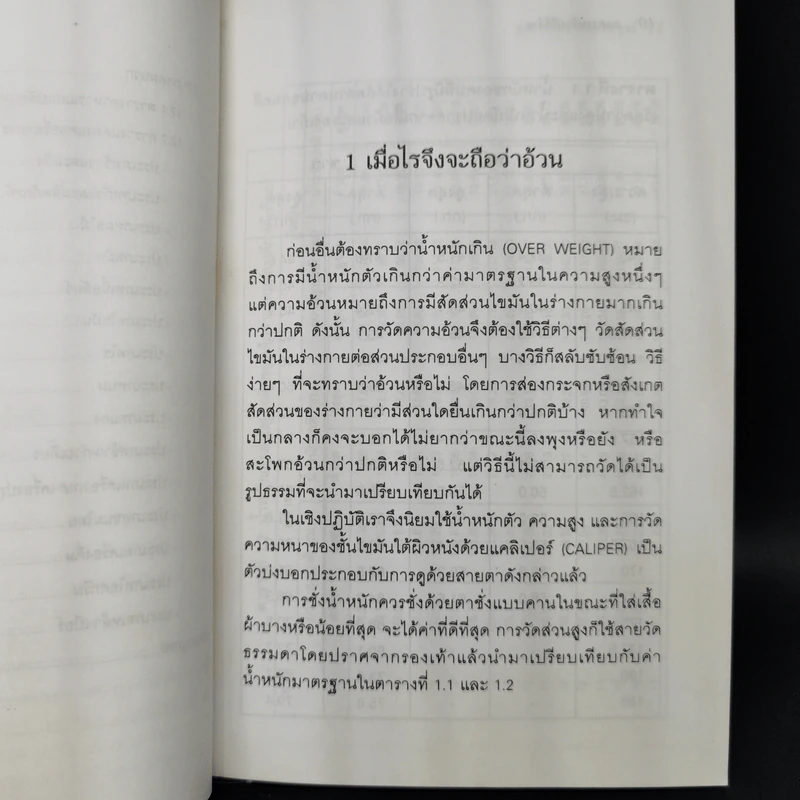 1 เมื่อไรจึงจะถือว่าอ้วน
ก่อนอื่นต้องทราบว่าน้ำหนักเกิน (OVER WEIGHT) หมาย
ถึงการมีน้ำหนักตัวเกินกว่าค่ามาตรฐานในความสูงหนึ่งๆ
แต่ความอ้วนหมายถึงการมีสัดส่วนไขมันในร่างกายมากเกิน
กว่าปกติ ดังนั้น การวัดความอ้วนจึงต้องใช้วิธีต่างๆ วัดสัดส่วน
ไขมันในร่างกายต่อส่วนประกอบอื่นๆ บางวิธีก็สลับซับซ้อน วิธี
ง่ายๆ ที่จะทราบว่าอ้วนหรือไม่ โดยการส่องกระจกหรือสังเกต
สัดส่วนของร่างกายว่ามีส่วนใดยื่นเกินกว่าปกติบ้าง หากทำใจ
เป็นกลางก็คงจะบอกได้ไม่ยากว่าขณะนี้ลงพุงหรือยัง หรือ
สะโพกอ้วนกว่าปกติหรือไม่ แต่วิธีนี้ไม่สามารถวัดได้เป็น
รูปธรรมที่จะนำมาเปรียบเทียบกันได้
ในเชิงปฏิบัติเราจึงนิยมใช้น้ำหนักตัว ความสูง และการวัด
ความหนาของชั้นไขมันใต้ผิวหนังด้วยแคลิเปอร์ (CALIPER) เป็น
ตัวบ่งบอกประกอบกับการดูด้วยสายตาดังกล่าวแล้ว
การชั่งน้ำหนักควรชั่งด้วยตาชั่งแบบคานในขณะที่ใส่เสื้อ
ผ้าบางหรือน้อยที่สุด จะได้ค่าที่ดีที่สุด การวัดส่วนสูงก็ใช้สายวัด
ธรรมดาโดยปราศจากรองเท้าแล้วนำมาเปรียบเทียบกับค่า
น้ำหนักมาตรฐานในตารางที่ 1.1 และ 1.2